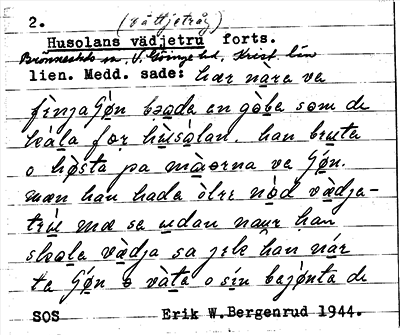 2. (vättjetråg)
Husolans vädjetru forts.
Brönnestads sn, V. Göinge hd, Krist. län
lien. Medd. sade: hær næra ve
finja sjøn boada en gòba som de
kàla fær hùsolan. han bruta
o hòsta pa mòorna ve sjøn.
mæn han hada òlri nòd vædja-
tru mæ se udan naur han
skola vædja sa jik han nár
te sjøn o våta o sin bajønta de
SOS Erik W.Bergenrud 1944.